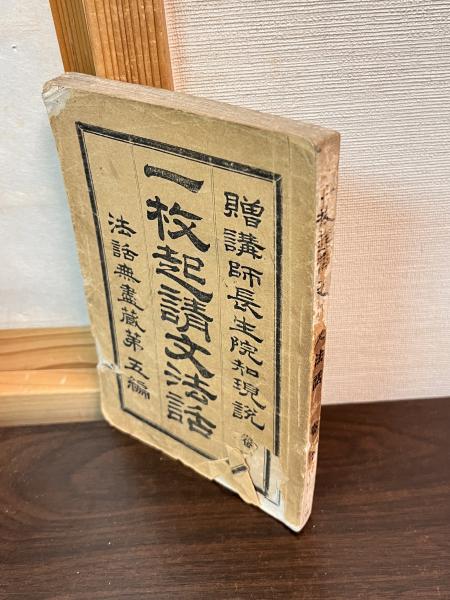 贈講師長生院智現説
一枚起請文法話
法話無盡蔵第五編
法話